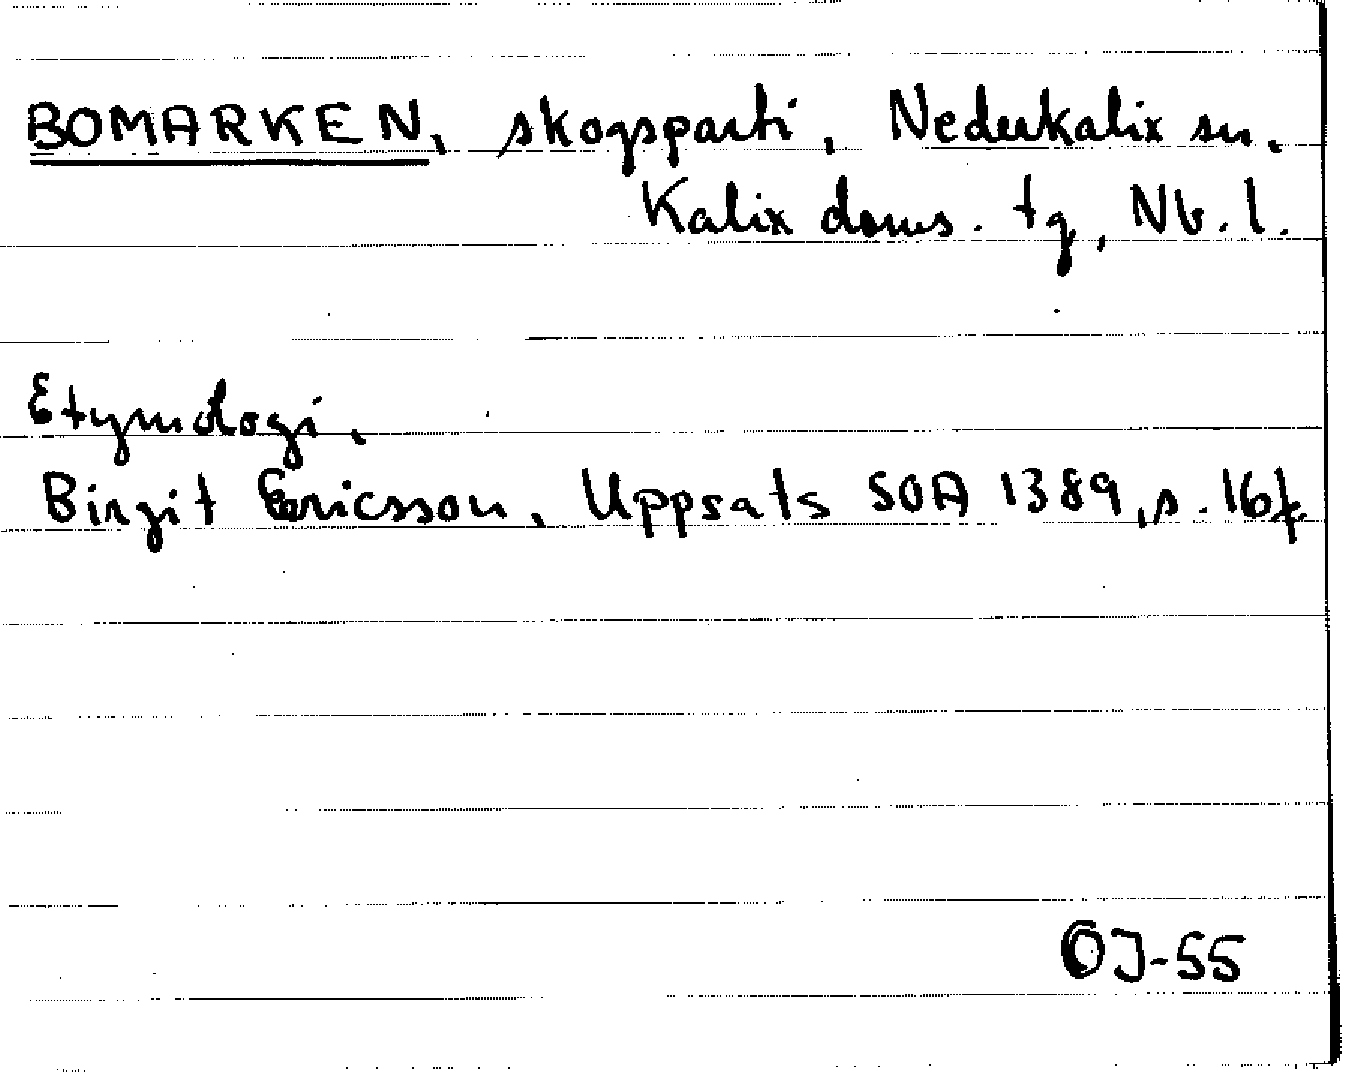 BOMARKEN, skogsparti, Nederkalix sn.
Kalix doms. tg, Nb. l.
Etymologi.
Birgit Ericsson, Uppsats SOA 1389, s. 16f
OJ-55